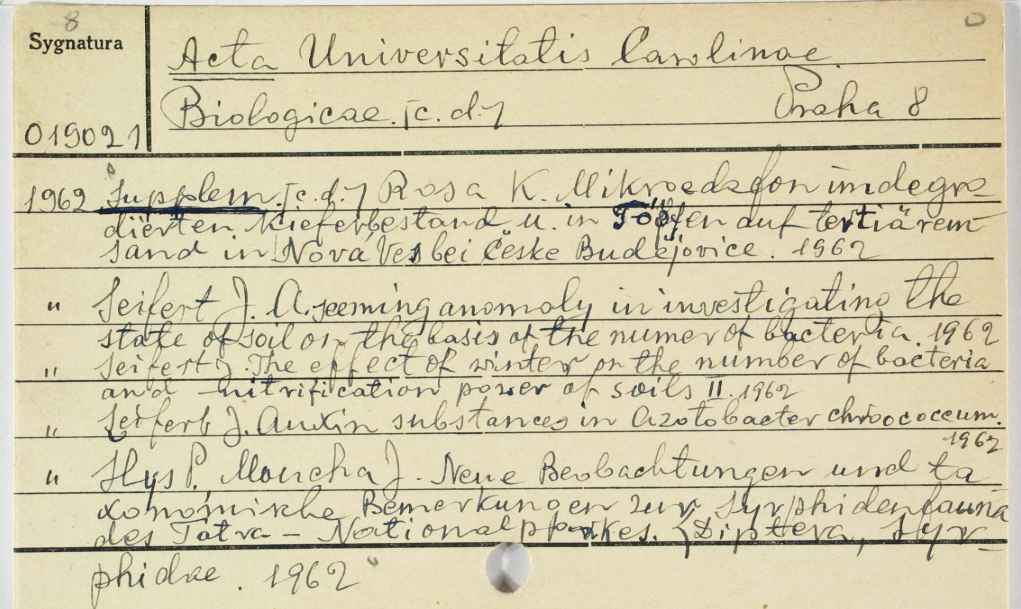 8
Sygnatura
Acta Universitatis Carolinae.
Biologicae. [c. d.] Praha 8
019021
1962 Supplem. [c. d.] Rosa K. Mikroedafon im degra-
dierten Kieferbestand u. in Töpfen auf tertiärem
sand in Nová Ves bei České Budějovice. 1962
" Seifert J. A seeming anomaly in investigating the
state of soil on the basis of the numer of bacteria. 1962
" Seifert J. The effect of winter on the number of bacteria
and nitrification power of soils II. 1962
" Seifert J. Auxin substances in Azotobacter chroococcum.
1962
" Hys P. Moucha J. Neue Beobachtungen und ta
xonomische Bemerkungen zur Syrphidenfauna
des Tatra - Nationalparkes. (Diptera, Syr-
phidae. 1962